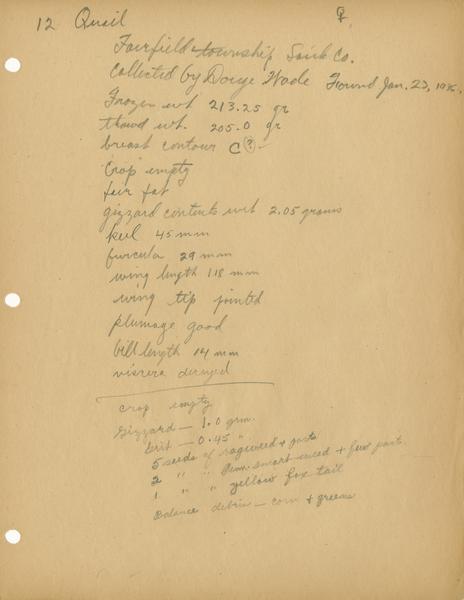 12 Quail ♀
Fairfield township Sauk Co.
Collected by Doug Wade Found Jan. 23,
Frozen wt 213.25 gr
thawd wt. 205.0 gr
breast contour C(?)-
Crop empty
fair fat
gizzard contents wt 2.05 grams
keel 45 mm
furcula 29 mm
wing length 118 mm
wing tip pointed
plumage good
bill length 14 mm
visera
crop empty
Gizzard - 1.0 grm.
Grit - 0.45 "
5 seeds of ragweed + parts
2 " " Penn. smart weed + few part.
1 " " yellow fox tail
Balance debris - corn + greens